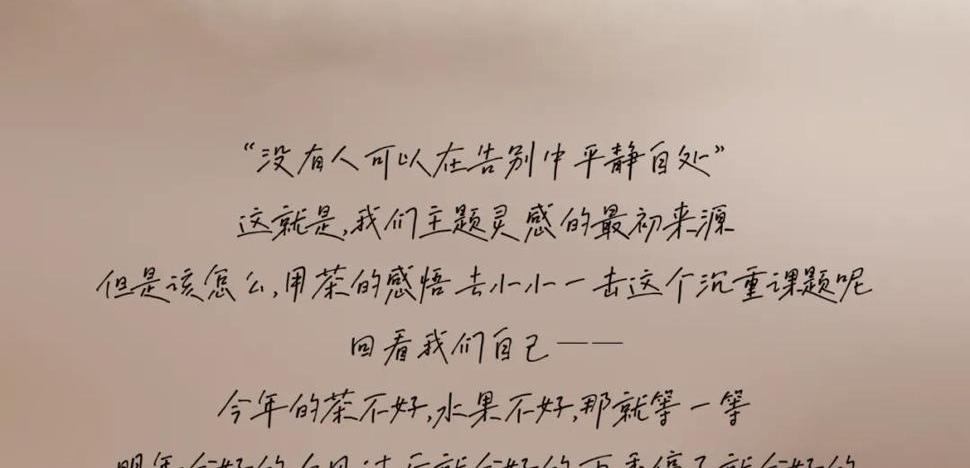 “没有人可以在告别中平静自处”
这就是，我们主题灵感的最初来源
但是该怎么，用茶的感悟去小小一击这个沉重课题呢
回看我们自己——
今年的茶不好，水果不好，那就等一等